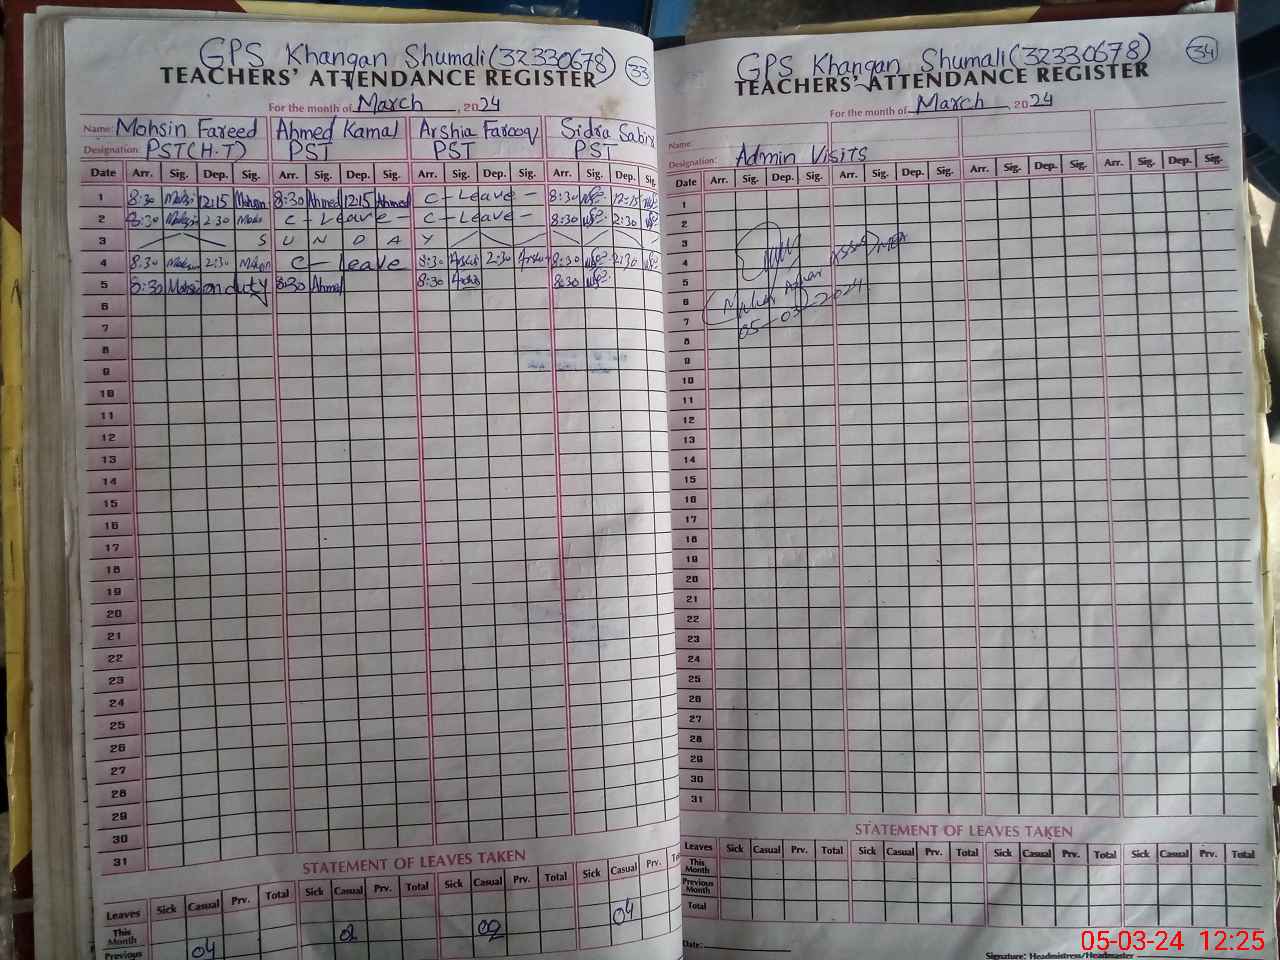 GPS Khangan Shumali (32330678) 33
TEACHERS' ATTENDANCE REGISTER
For the month of March, 2024
Name: Mohsin Fareed Ahmed Kamal Arshia Farooq Sidra Sabir
Designation: PST (H.T) PST PST PST
Date Arr. Sig. Dep. Sig. Arr. Sig. Dep. Sig. Arr. Sig. Dep. Sig. Arr. Sig. Dep. Sig.
1 8:30 Mohsin 12:15 Mohsin 8:30 Ahmed 12:15 Ahmed C-Leave- 8:30 12:15
2 8:30 Mohsin 2:30 Mohsin C-Leave- C-Leave- 8:30 2:30
3 S U N D A Y
4 8:30 Mohsin 2:30 Mohsin C-Leave 8:30 Arshia 2:30 Arshia 8:30 2:30
5 8:30 Mohsin on duty 8:30 Ahmed 8:30 Arshia 8:30
6
7
8
9
10
11
12
13
14
15
16
17
18
19
20
21
22
23
24
25
26
27
28
29
30
31
STATEMENT OF LEAVES TAKEN
Leaves Sick Casual Prv. Total Sick Casual Prv. Total Sick Casual Prv. Total Sick Casual Prv. To
This Month 02 02 04
Previous 04
GPS Khangan Shumali (32330678) 34
TEACHERS' ATTENDANCE REGISTER
For the month of March, 2024
Name:
Designation: Admin Visits
Date Arr. Sig. Dep. Sig. Arr. Sig. Dep. Sig. Arr. Sig. Dep. Sig. Arr. Sig. Dep. Sig.
1
2
3
4
5
6
7
05-03-2024
8
9
10
11
12
13
14
15
16
17
18
19
20
21
22
23
24
25
26
27
28
29
30
31
STATEMENT OF LEAVES TAKEN
Leaves Sick Casual Prv. Total Sick Casual Prv. Total Sick Casual Prv. Total Sick Casual Prv. Total
This Month
Previous Month
Total
Date:
Signature: Headmistress/Headmaster
05-03-24 12:25